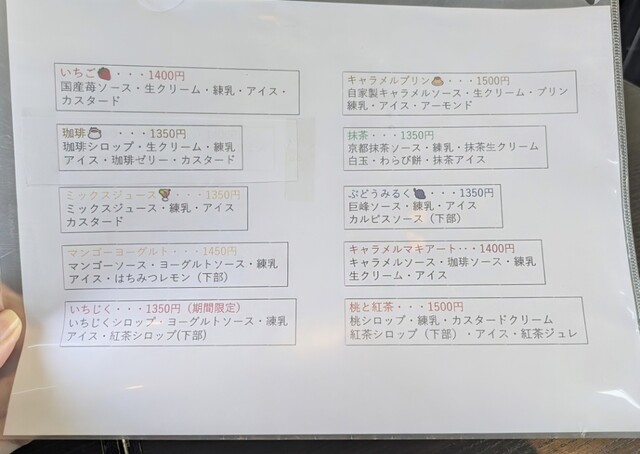 いちご🍓・・・1400円
国産苺ソース・生クリーム・練乳・アイス・
カスタード
珈琲☕ ・・・1350円
珈琲シロップ・生クリーム・練乳
アイス・珈琲ゼリー・カスタード
ミックスジュース🍹・・・1350円
ミックスジュース・練乳・アイス
カスタード
マンゴーヨーグルト・・・1450円
マンゴーソース・ヨーグルトソース・練乳
アイス・はちみつレモン（下部）
いちじく・・・1350円（期間限定）
いちじくシロップ・ヨーグルトソース・練乳
アイス・紅茶シロップ(下部）
キャラメルプリン🍮・・・1500円
自家製キャラメルソース・生クリーム・プリン
練乳・アイス・アーモンド
抹茶・・・1350円
京都抹茶ソース・練乳・抹茶生クリーム
白玉・わらび餅・抹茶アイス
ぶどうみるく🍇・・・1350円
巨峰ソース・練乳・アイス
カルピスソース（下部）
キャラメルマキアート・・・1400円
キャラメルソース・珈琲ソース・練乳
生クリーム・アイス
桃と紅茶・・・1500円
桃シロップ・練乳・カスタードクリーム
紅茶シロップ（下部）・アイス・紅茶ジュレ